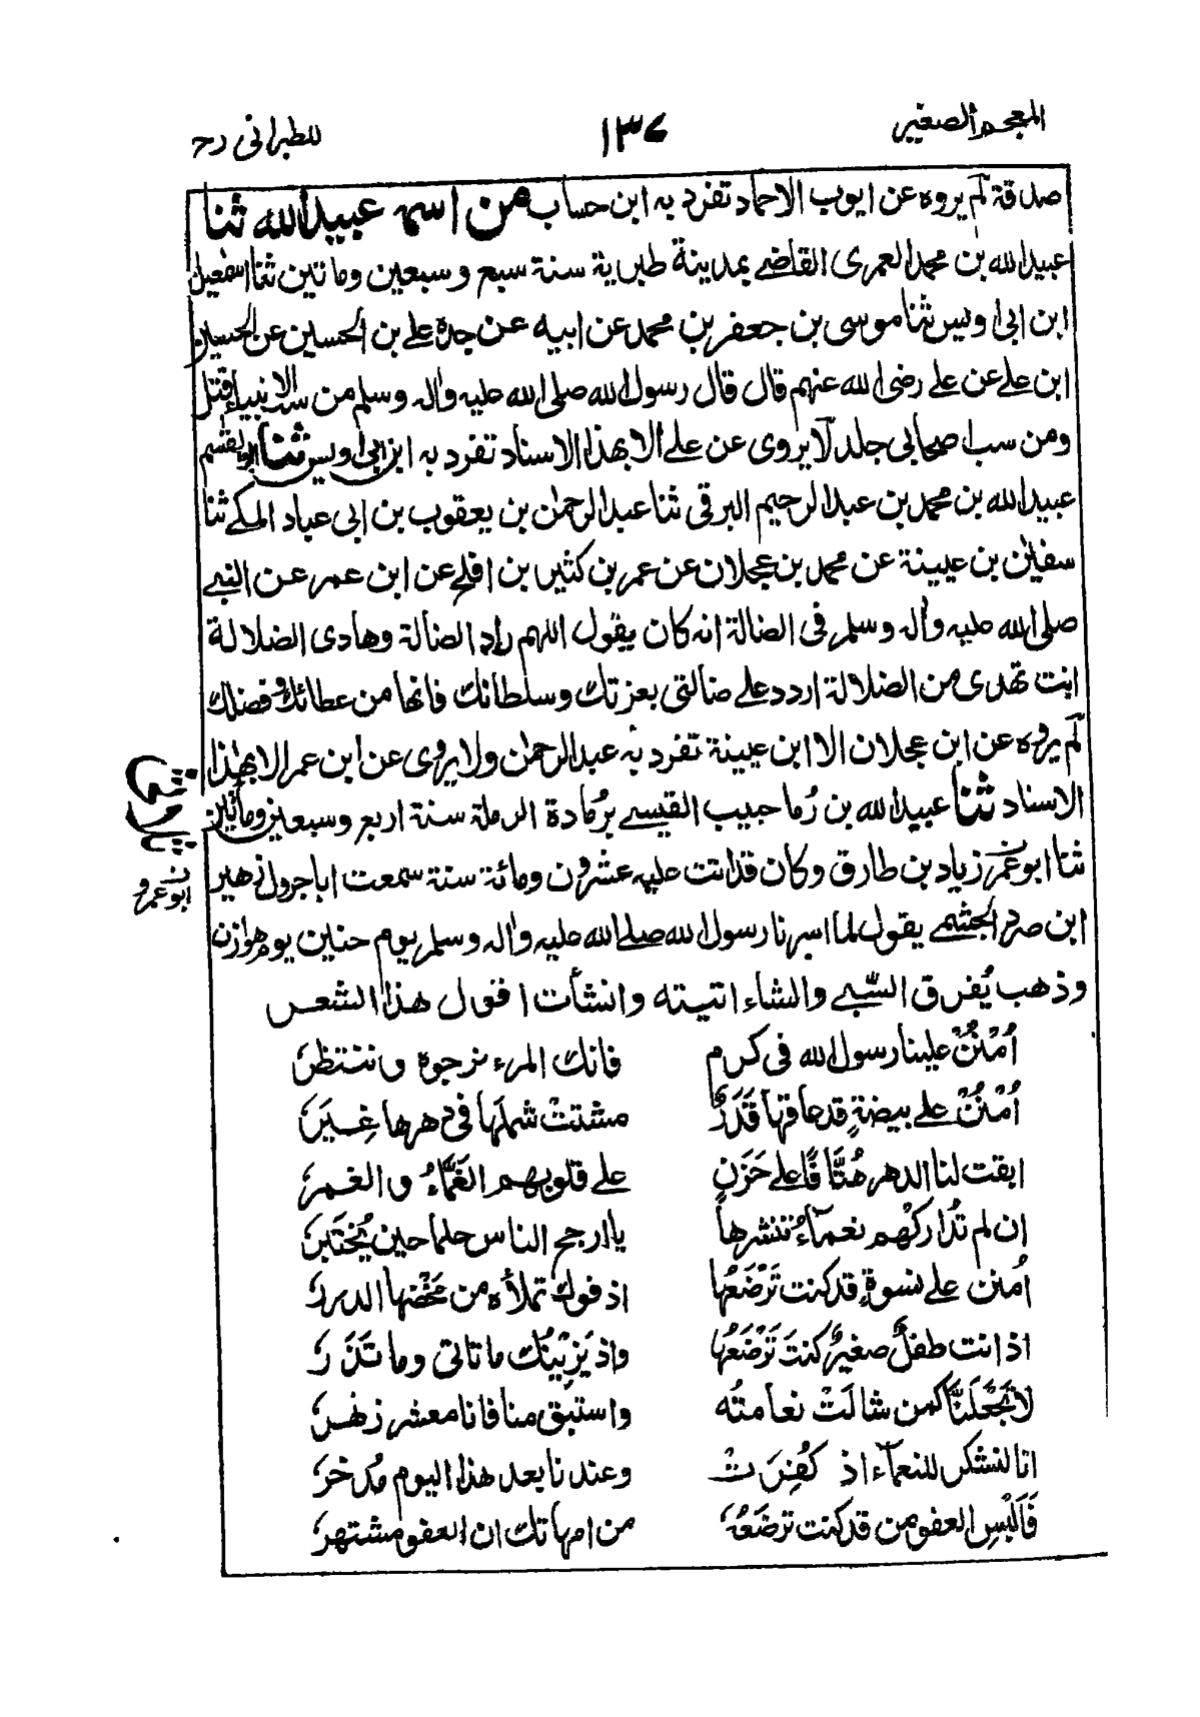 المعجم الصغير ١٣٧ للطبرانى رح
صدقة لم يروه عن ايوب الاحماد تفرد به ابن حساب من اسمه عبيدالله ثنا
عبيدالله بن محمد العمرى القاضے بمدينة طبرية سنة سبع وسبعين ومائتين ثنا اسمٰعيل
ابن ابى اويس ثنا موسى بن جعفر بن محمد عن ابيه عن جده علے بن الحسين عن الحسين
ابن علے عن علے رضى الله عنهم قال قال رسول الله صلى الله عليه واٰله وسلم من سب الانبياء قتل
ومن سب اصحابى جلد لا يروى عن علے الا بهذا الاسناد تفرد به ابن ابى اويس ثنا ابو القٰسم
عبيدالله بن محمد بن عبدالرحيم البرقى ثنا عبدالرحمٰن بن يعقوب بن ابى عباد المكے ثنا
سفيٰن بن عيينة عن محمد بن عجلان عن عمر بن كثير بن افلح عن ابن عمر عن النبے
صلى الله عليه واٰله وسلم فى الضالة انه كان يقول اللهم راد الضالة وهادى الضلالة
انت تهدى من الضلالة اردد علے ضالتى بعزتك وسلطانك فانها من عطائك وفضلك
لم يروه عن ابن عجلان الا ابن عيينة تفرد به عبدالرحمٰن ولا يروى عن ابن عمر الا بهٰذا
الاسناد ثنا عبيدالله بن رُماحيب القيسے برُمادة الرملة سنة اربع وسبعين ومائتين
ثنا ابو عمر زياد بن طارق وكان قد اتت عليه عشرون ومائة سنة سمعت اباجرول زهير
ابو عمرو
ابن صرد الجشمے يقول لما اسرنا رسول الله صلے الله عليه واٰله وسلم يوم حنين يوم هوازن
وذهب يُفرق السَّبے والشاء اتيته وانشأت اقول هذا الشعر
اُمْنُنْ علينا رسول الله فى كرم فانك المرء نرجوه وننتظرُ
اُمْنُنْ علے بيضةٍ قد عاقها قَدَرٌ مشتتٌ شملها فى دهرها غِيَرُ
ابقت لنا الدهر هُتَّافًا علے حَزَنٍ علے قلوبهم الغَمَّاءُ والغمرُ
ان لم تدُاركْهم نعمآءُ تنشرها يا ارجح الناس حلماً حين يُختَبرُ
اُمنن علے نسوةٍ قد كنت تَرْضَعُها اذ فوك تملأه من مَحْضها الدررُ
اذ انت طفلٌ صغيرٌ كنتَ تَرْضَعُها واذ يَزِيْنُك ما تاتى وما تَذَرُ
لا تَجْعَلَنَّا كمن شالَتْ نعامتُه واستبق منا فانا معشر زهرُ
انا لنشكر للنعمآء اذ كُفِرَتْ وعندنا بعد هذا اليوم مُدخرُ
فَاَلْبِسِ العفو من قد كنت ترضَعُه من امهاتك ان العفو مشتهرُ